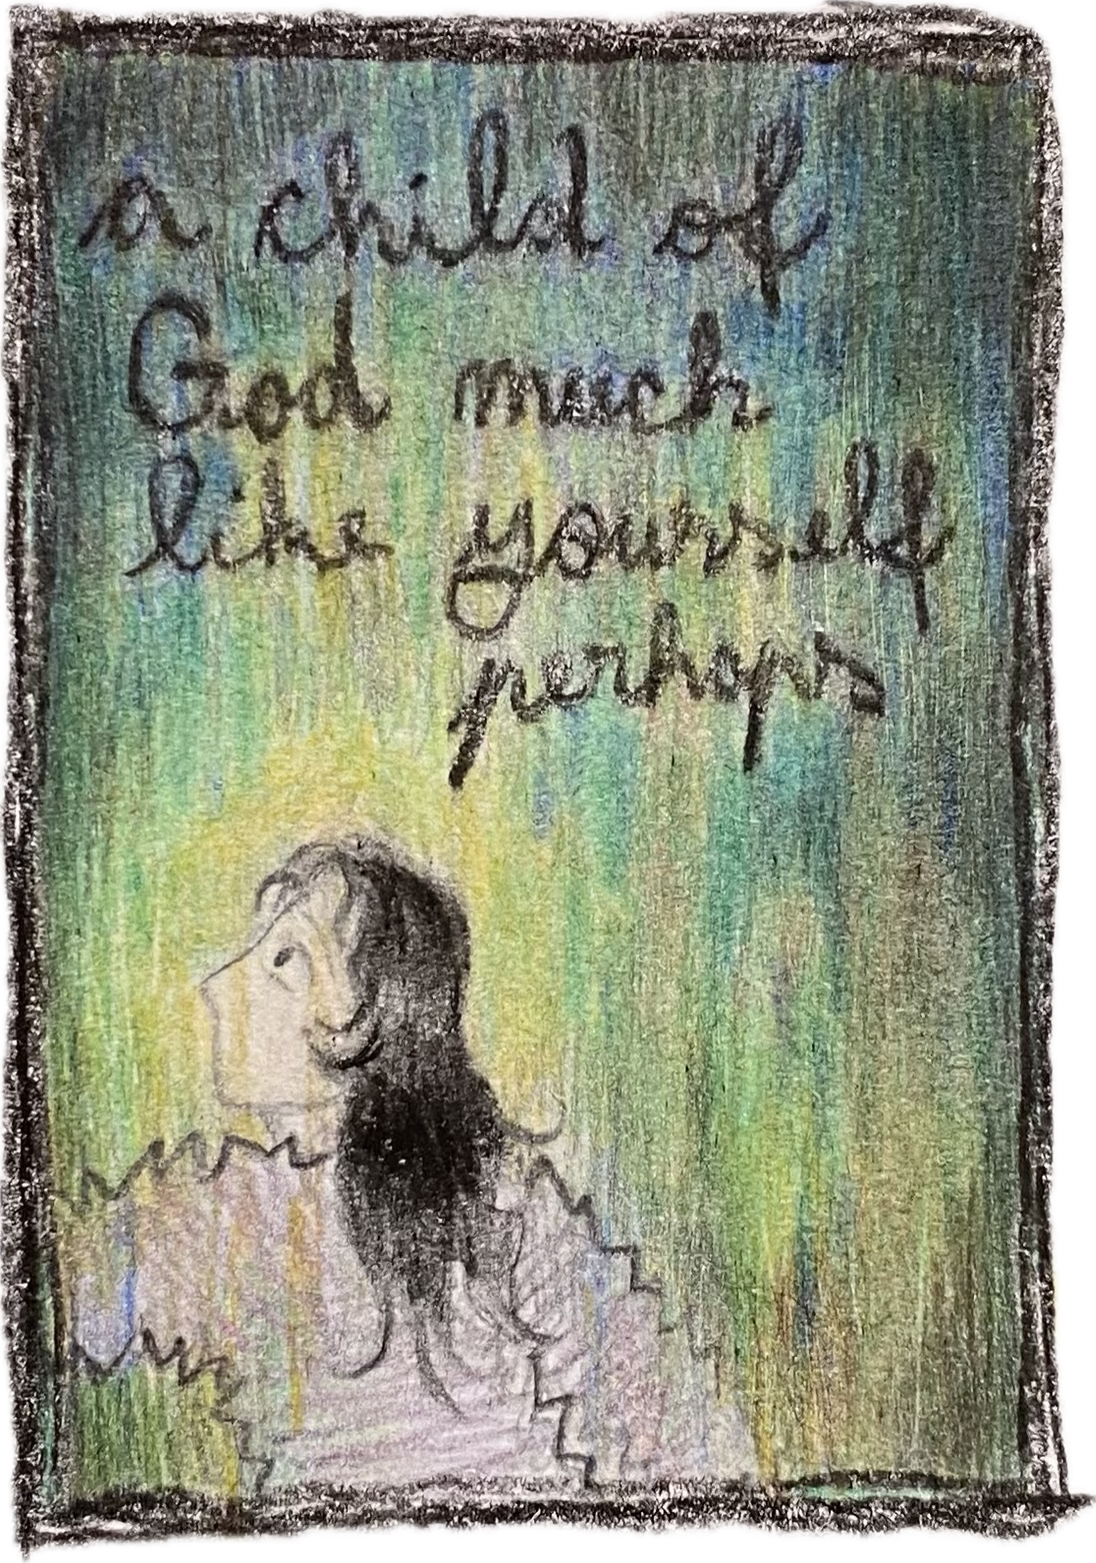 a child of
God much
like yourself
perhaps